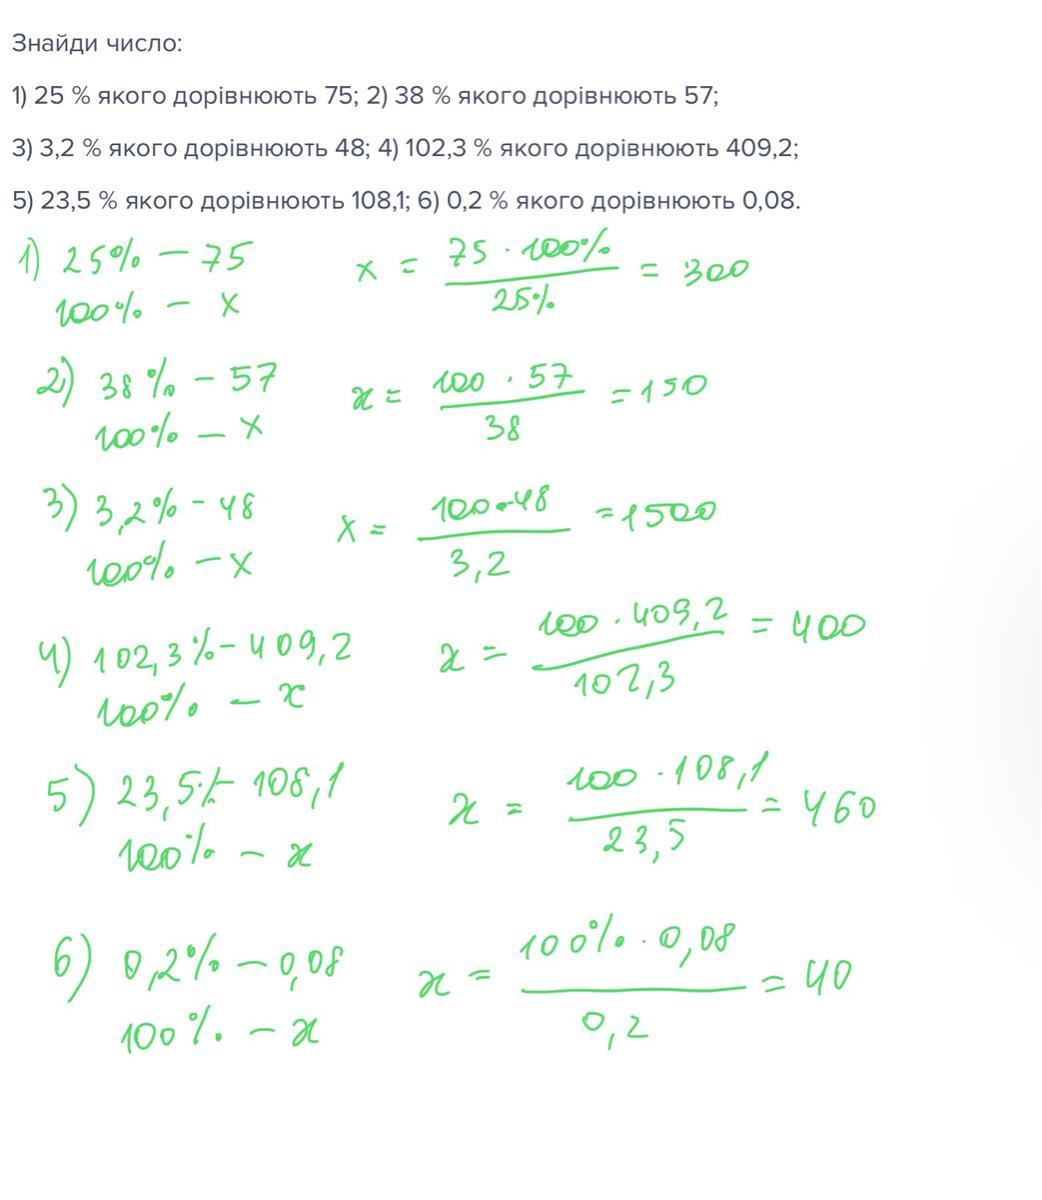 Знайди число:
1) 25 % якого дорівнюють 75; 2) 38 % якого дорівнюють 57;
3) 3,2 % якого дорівнюють 48; 4) 102,3 % якого дорівнюють 409,2;
5) 23,5 % якого дорівнюють 108,1; 6) 0,2 % якого дорівнюють 0,08.
1) 25% – 75
100% – x
x = 75 · 100% / 25% = 300
2) 38% – 57
100% – x
x = 100 · 57 / 38 = 150
3) 3,2% – 48
100% – x
x = 100 · 48 / 3,2 = 1500
4) 102,3% – 409,2
100% – x
x = 100 · 409,2 / 102,3 = 400
5) 23,5% – 108,1
100% – x
x = 100 · 108,1 / 23,5 = 460
6) 0,2% – 0,08
100% – x
x = 100% · 0,08 / 0,2 = 40